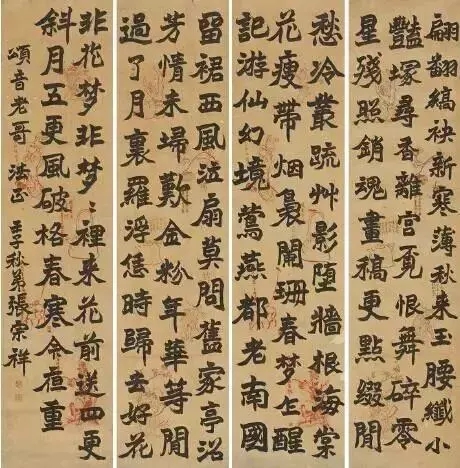 翩翻縞袂新寒薄秋來玉腰纖小
豔塚尋香離宮覓恨舞碎零
星殘照銷魂畫稿更點綴閒
愁冷叢疏艸影墮牆根海棠
花瘦帶烟裊闌珊春夢乍醒
記游仙幻境鶯燕都老南國
留裙西風泣扇莫問舊家亭沼
芳情未埽歎金粉年華等閒
過了月裏羅浮恁時歸去好花
非花夢非夢〻裡来花前送四更
斜月五更風破格春寒重
頌音老哥 法正 壬子秋弟張宗祥